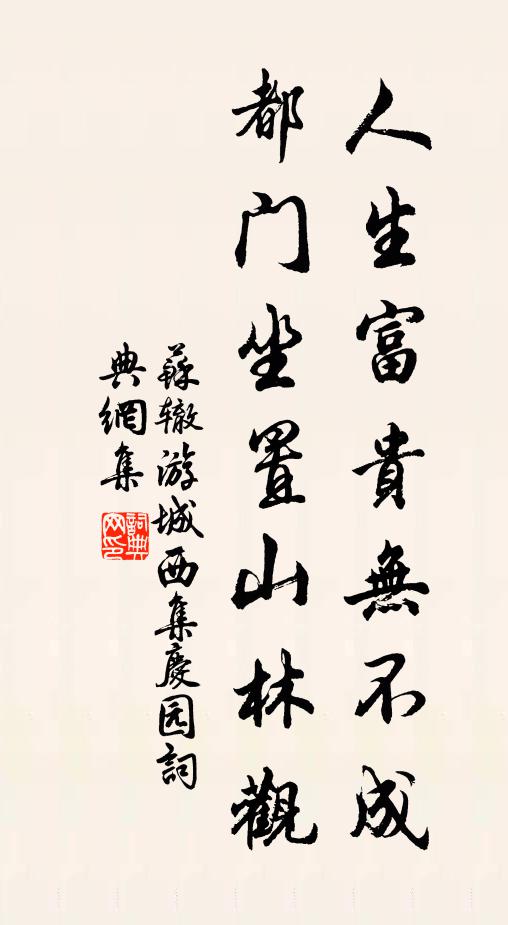 人生富貴無不成
都门坐置山林觀
蘇辙游城西集慶园詞
典網集
詞典
网印